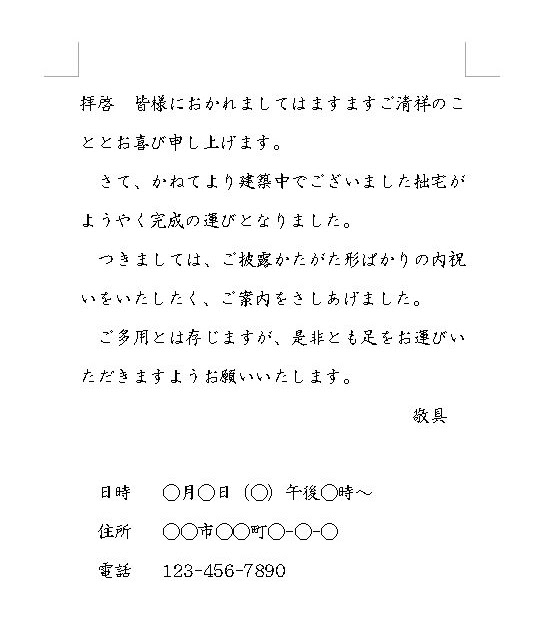 拝啓　皆様におかれましてはますますご清祥のこ
ととお喜び申し上げます。
　さて、かねてより建築中でございました拙宅が
ようやく完成の運びとなりました。
　つきましては、ご披露かたがた形ばかりの内祝
いをいたしたく、ご案内をさしあげました。
　ご多用とは存じますが、是非とも足をお運びい
ただきますようお願いいたします。
敬具
日時　○月○日（○）午後○時～
住所　○○市○○町○-○-○
電話　123-456-7890